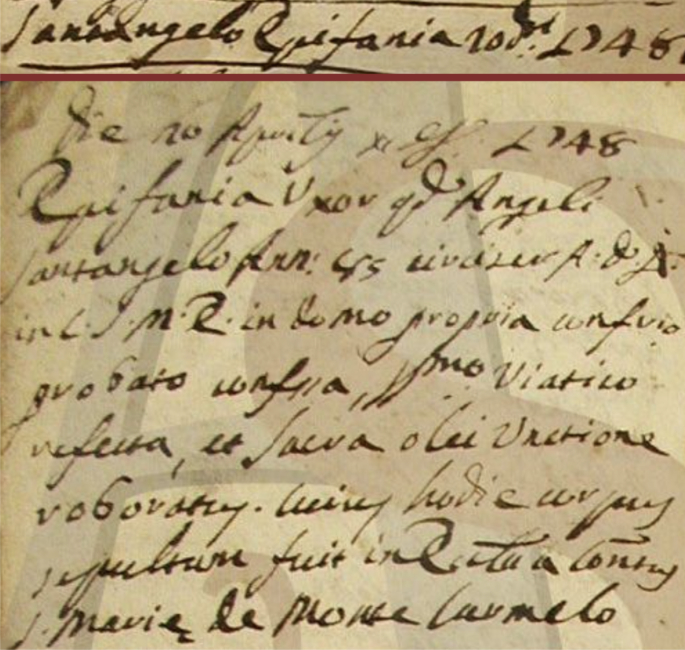 Santangelo Epifania 20 d.o 1748
Die 20 Aprilis 1748
Epifania Uxor qd Angeli
Santangelo Ann: 45 circiter A. D. R.
in C. S. M. E. in domo propria confessario
probato confessa, SSmo Viatico
refecta, et Sacra olei Unctione
roborata. Cuius hodie corpus
sepultum fuit in Eccl.a Contus
S. Marie de Monte Carmelo